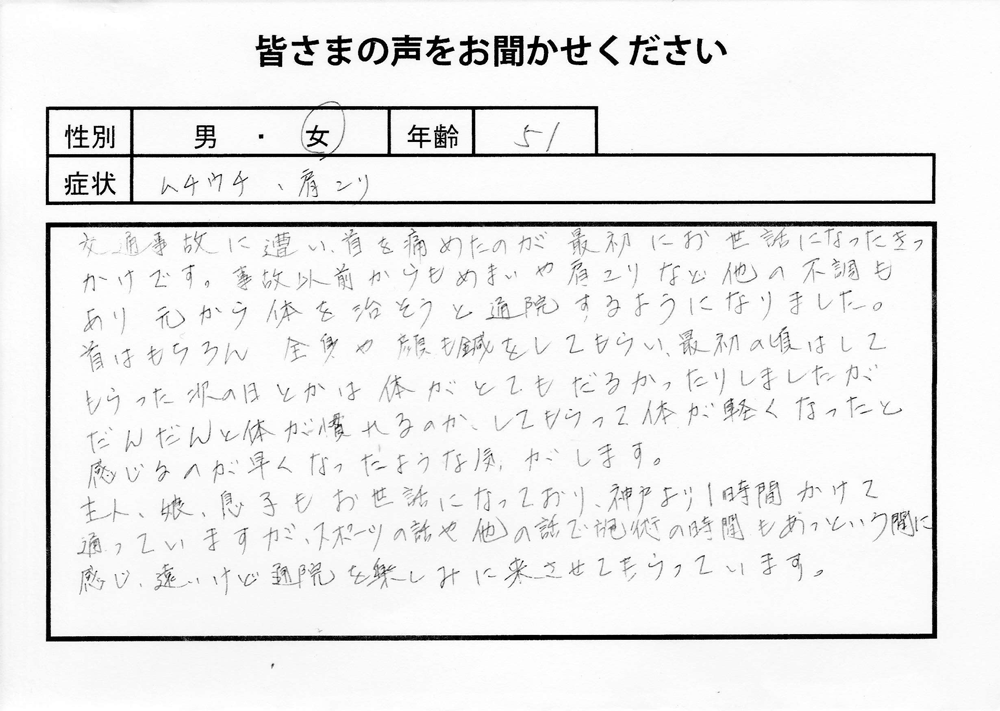 皆さまの声をお聞かせください
性別 男 ・ 女 年齢 51
症状 ムチウチ、肩コリ
交通事故に遭い、首を痛めたのが最初にお世話になったきっ
かけです。事故以前からもめまいや肩こりなど他の不調も
あり元から体を治そうと通院するようになりました。
首はもちろん全身や顔も鍼をしてもらい、最初の頃はして
もらった次の日とかは体がとてもだるかったりしましたが
だんだんと体が慣れるのか、してもらって体が軽くなったと
感じるのが早くなったような気がします。
主人、娘、息子もお世話になっており、神戸より1時間かけて
通っていますが、スポーツの話や他の話で施術の時間もあっという間に
感じ、遠いけど通院を楽しみに来させてもらっています。